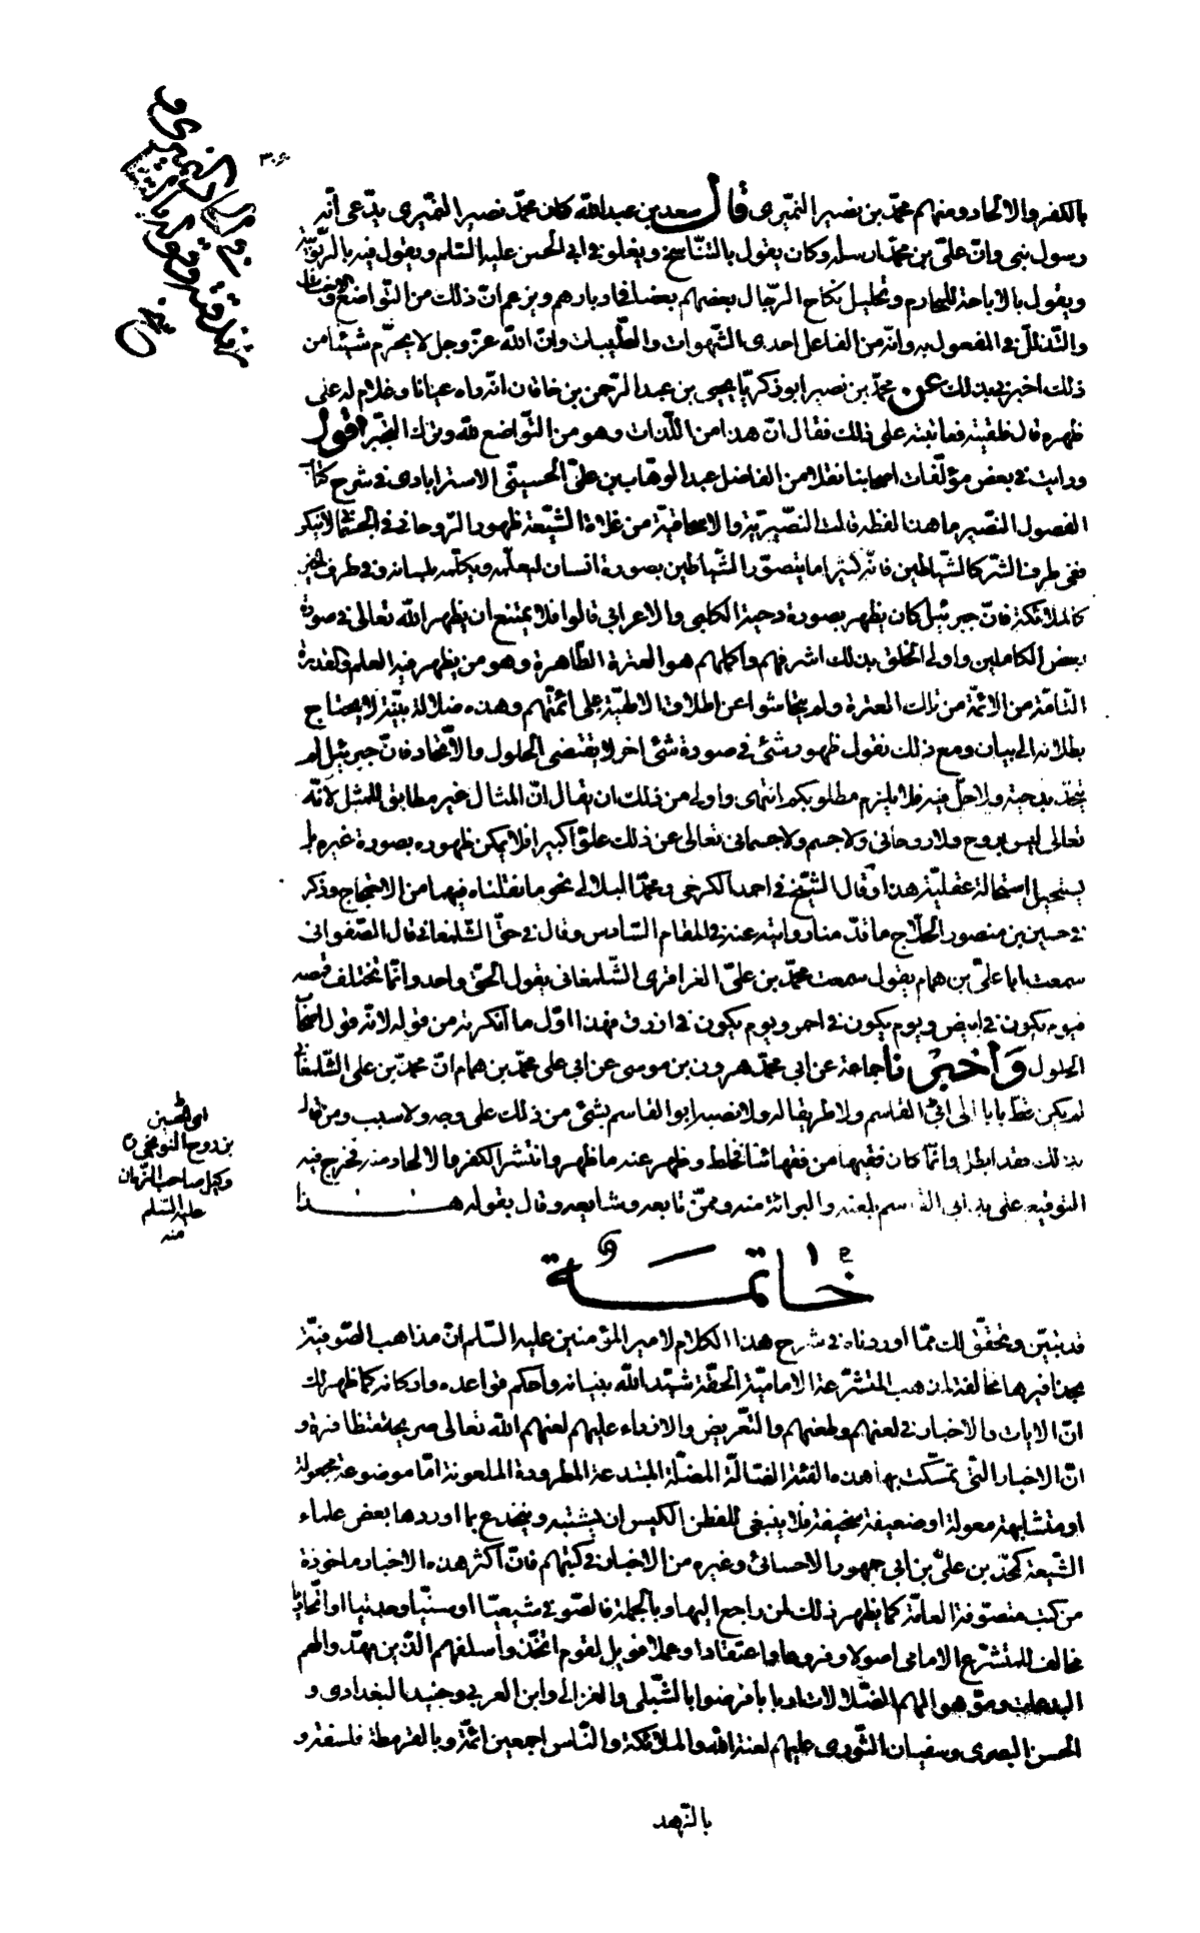 ٣٠٤
بالكفر والالحاد ومنهم محمّد بن نصير النميرى قال سعد بن عبد الله كان محمّد نصير النّميرى يدّعى انّه
رسول نبى وانّ علىّ بن محمّد ارسله وكان يقول بالتّناسخ ويغلو فى ابى الحسن عليه السّلم ويقول فيه بالرّبوبيّة
ويقول بالاباحة للمحارم وتحليل نكاح الرّجال بعضهم بعضا فى ادبارهم ويزعم انّ ذلك من التّواضع والاخبات
والتّذلّل فى المفعول به وانّه من الفاعل احدى الشّهوات والطّيبات وانّ الله عزّ وجل لا يحرّم شيئا من
ذلك اخبر بذلك عن محمّد بن نصير ابو ذكريّا يحيى بن عبد الرّحمن بن خاقان انّه راه عيانا وغلام له على
ظهره قال فلقيته فعاتبته على ذلك فقال انّ هذا من اللّذات وهو من التّواضع لله وترك التجبّر اقول
ورايت فى بعض مؤلّفات اصحابنا نقلا من الفاضل عبد الوهاب بن علىّ الحسينى الاسترابادى فى شرح كتاب
الفصول النّصيريه ما هذا لفظه قالت النّصيريّة والاسحاقيّة من غلاة الشّيعة ظهور الرّوحانى فى الجسمانى لا ينكر
ففى طرف الشّر كالشّياطين فانّه كثيرا ما يتصوّر الشّياطين بصورة انسان ليعلّمه ويكلّمه بلسانه وفى طرف الخير
كالملائكة فانّ جبرئيل كان يظهر بصورة دحية الكلبى والاعرابى قالوا فلا يمتنع ان يظهر الله تعالى فى صورة
بعض الكاملين واولى الخلق بذلك اشرفهم واكملهم هو العترة الطّاهرة وهو من يظهر فيه العلم والقدرة
التّامّة من الائمّة من تلك العترة ولم يتحاشوا عن اطلاق الالهيّة على ائمّتهم وهذه ضلالة بيّنة لا يحتاج
بطلانه الى بيان ومع ذلك نقول ظهور شئ فى صورة شئ اخر لا يقتضى الحلول والاتّحاد فانّ جبرئيل لم
يتّحد بدحية ولا حلّ فيه فلا يلزم مطلوبكم انتهى واولى من ذلك ان يقال انّ المثال غير مطابق للمثل لانّه
تعالى ليس بروح ولا روحانى ولا جسم ولا جسمانى تعالى عن ذلك علوّا كبيرا فلا يمكن ظهوره بصورة غيره بل
يستحيل استحالة عقليّة هذا وقال الشّيخ فى احمد الكرخى ومحمّد البلالى نحو ما نقلناه فيهما من الاحتجاج وذكر
فى حسين بن منصور الحلّاج ما قدّمنا روايته عنه فى المقام السّادس وقال فى حقّ الشّلمغانى قال الصّفوانى
سمعت ابا علىّ بن همام يقول سمعت محمّد بن علىّ العزاقرى الشّلمغانى يقول الحقّ واحد وانّما تختلف قمصه
فيوم يكون فى ابيض ويوم يكون فى احمر ويوم يكون فى ازرق فهذا اوّل ما انكرته من قوله لانّه قول اصحاب
الحلول وأخبرنا جماعة عن ابى محمّد هرون بن موسى عن ابى على محمّد بن همام انّ محمّد بن على الشّلمغانى
لم يكن قط بابا الى ابى القاسم ولا طريقا له ولا نصبه ابو القاسم بشئ من ذلك على وجه ولا سبب ومن قال
بذلك فقد ابطل وانّما كان فقيها من فقهائنا فخلط وظهر عنه ما ظهر وانتشر الكفر والالحاد منه فخرج فيه
التوقيع على يد ابى القاسم بلعنه والبرائة منه وممّن تابعه وشايعه وقال بقوله هذا
ابى الحسين
بن روح النوبختى
وكيل صاحب الزّمان
عليه السّلم
منه
خاتمة
قد تبيّن وتحقّق لك ممّا اوردناه فى شرح هذا الكلام لامير المؤمنين عليه السّلم انّ مذاهب الصّوفيّة
بحذافيرها مخالفة لمذهب المتشرّعة الاماميّة الحقّة شيّد الله بنيانه واحكم قواعده واركانه كما ظهر لك
انّ الايات والاخبار فى لعنهم وطعنهم والتّعريض والازراء عليهم لعنهم الله تعالى صريحة متظافرة و
انّ الاخبار التّى تمسّكت بها هذه الفئة الضّالّة المضلّة المبتدعة المطرودة الملعونة امّا موضوعة مجعولة
او متشابهة معولة او ضعيفة سخيفة فلا ينبغى للفطن الكيس ان يشتبه وينخدع بما اوردها بعض علماء
الشّيعة كمحمّد بن علىّ بن ابى جمهور الاحسائى وغيره من الاخبار فى كتبهم فانّ اكثر هذه الاخبار ماخوذة
من كتب متصوّفة العامّة كما يظهر ذلك لمن راجع اليها وبالجملة فالصّوفى متشيعا او سنّيا وحدتيا او اتّحاديا
مخالف للمتشرّع الامامى اصولا وفروعا واعتقادا وعملا فويل لقوم اتّخذوا سلفهم الّذين مهّدوا لهم
البدعات وموّهوا لهم الضّلالات اربابا فرضوا بالشّبلى والغزالى وابن العربى وجنيد البغدادى و
الحسن البصرى وسفيان الثّورى عليهم لعنة الله والملائكة والنّاس اجمعين ائمّة وبالقرمطة فلسفة و
بالزّهد